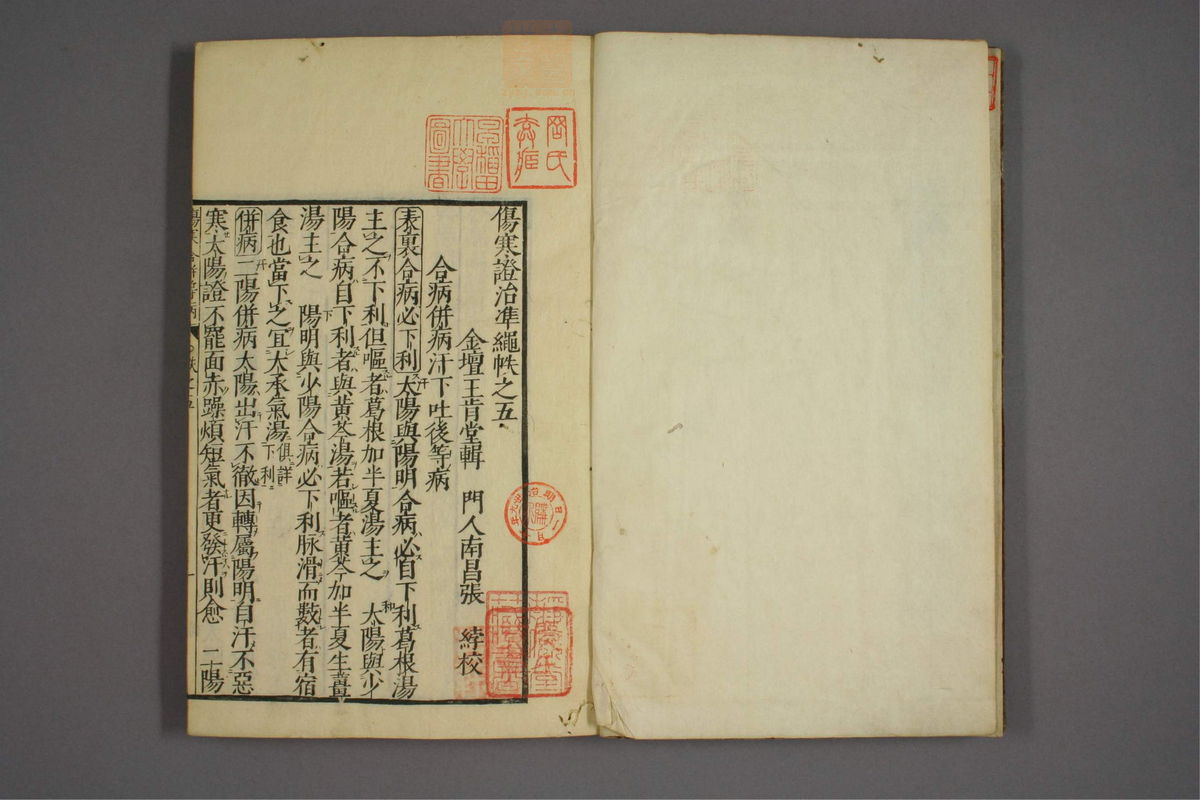 傷寒證治準繩帙之五
金壇王肯堂輯　門人南昌張　綍校
合病併病汗下吐後等病
表裏合病必下利太陽與陽明合病必自下利葛根湯
主之不下利但嘔者葛根加半夏湯主之　太陽與少
陽合病自下利者與黃芩湯若嘔者黃芩加半夏生薑
湯主之　陽明與少陽合病必下利脉滑而數者有宿
食也當下之宜大承氣湯俱詳下利
併病二陽併病太陽出汗不徹因轉屬陽明自汗不惡
寒太陽證不罷面赤躁煩短氣者更發汗則愈　二陽
早稻田大學圖書